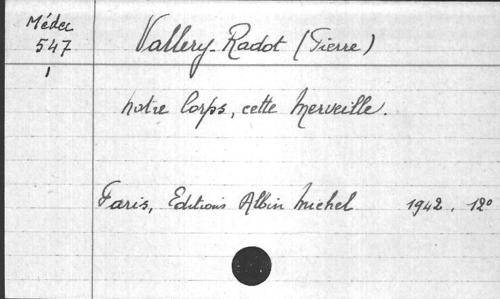 Médec
547
1
Vallery-Radot (Pierre)
Notre Corps, cette Merveille.
Paris, Editions Albin Michel 1942. 12°